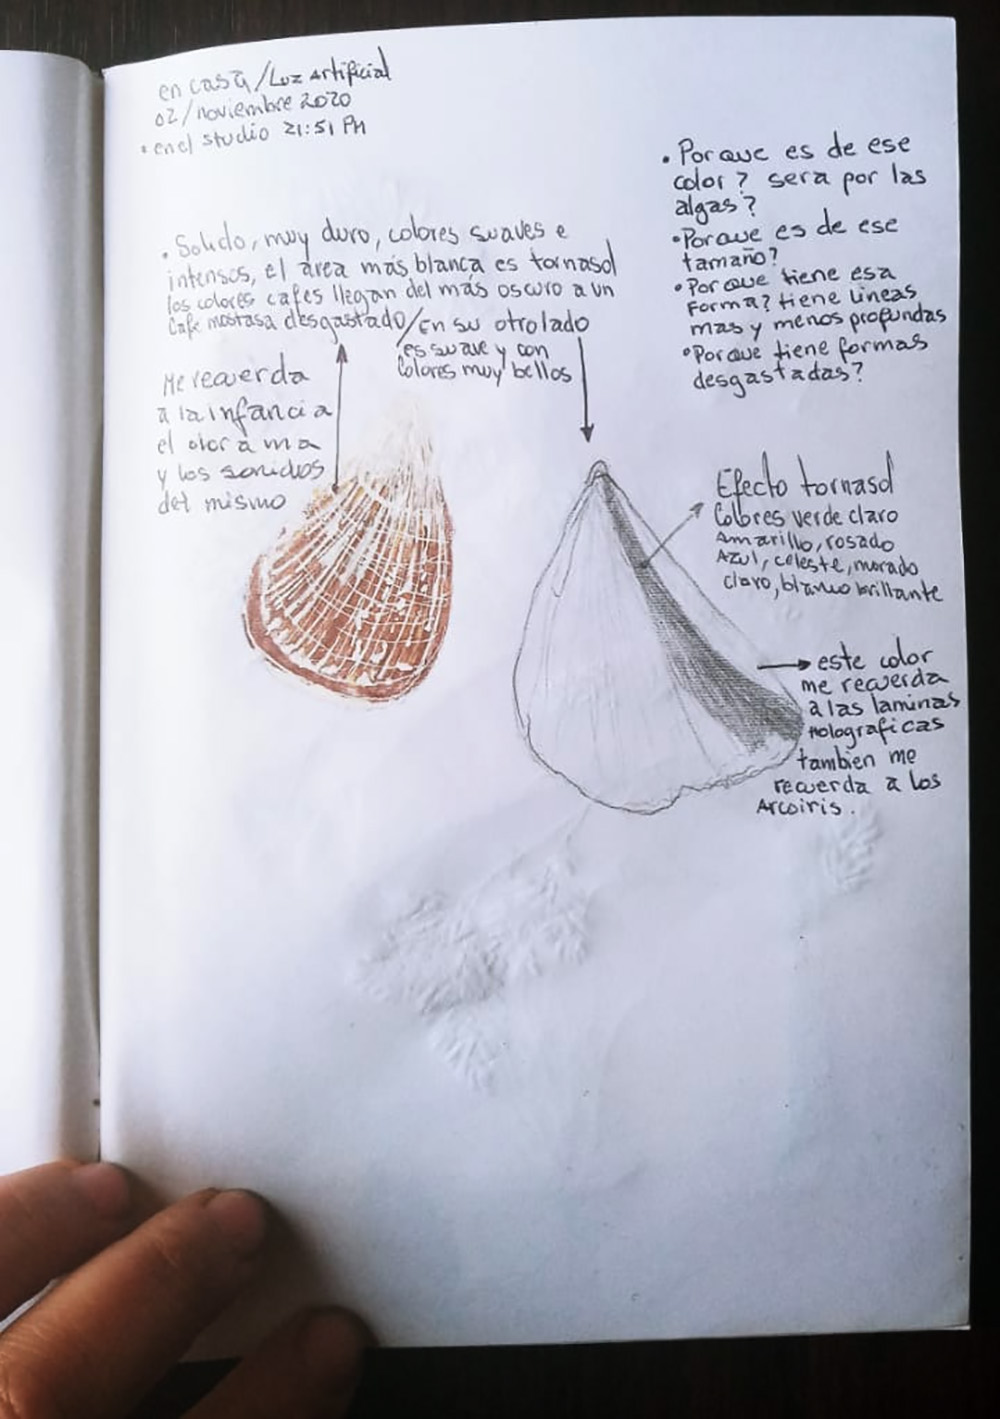 en casa/Luz Artificial
02/noviembre 2020
• en el studio 21:51 PM
• Porque es de ese
color? sera por las
algas?
• Porque es de ese
tamaño?
• Porque tiene esa
Forma? tiene lineas
mas y menos profundas
• Porque tiene formas
desgastadas?
• Solido, muy duro, colores suaves e
intensos, el area más blanca es tornasol
los colores cafes llegan del mas oscuro a un
Cafe mostasa desgastado/En su otro lado
es suave y con
Colores muy bellos
Me recuerda
a la infancia
el olor a ma
y los sonidos
del mismo
Efecto tornasol
Colores verde claro
Amarillo, rosado
Azul, celeste, morado
claro, blanco brillante
este color
me recuerda
a las laminas
holograficas
tambien me
recuerda a los
Arcoiris.